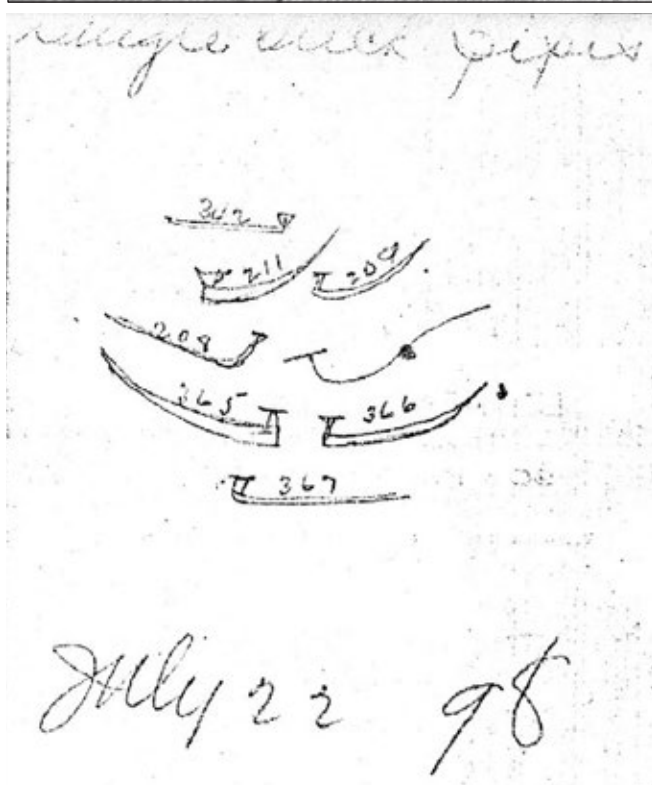 pipes
342
211 209
208
365 366
367
July 22 98